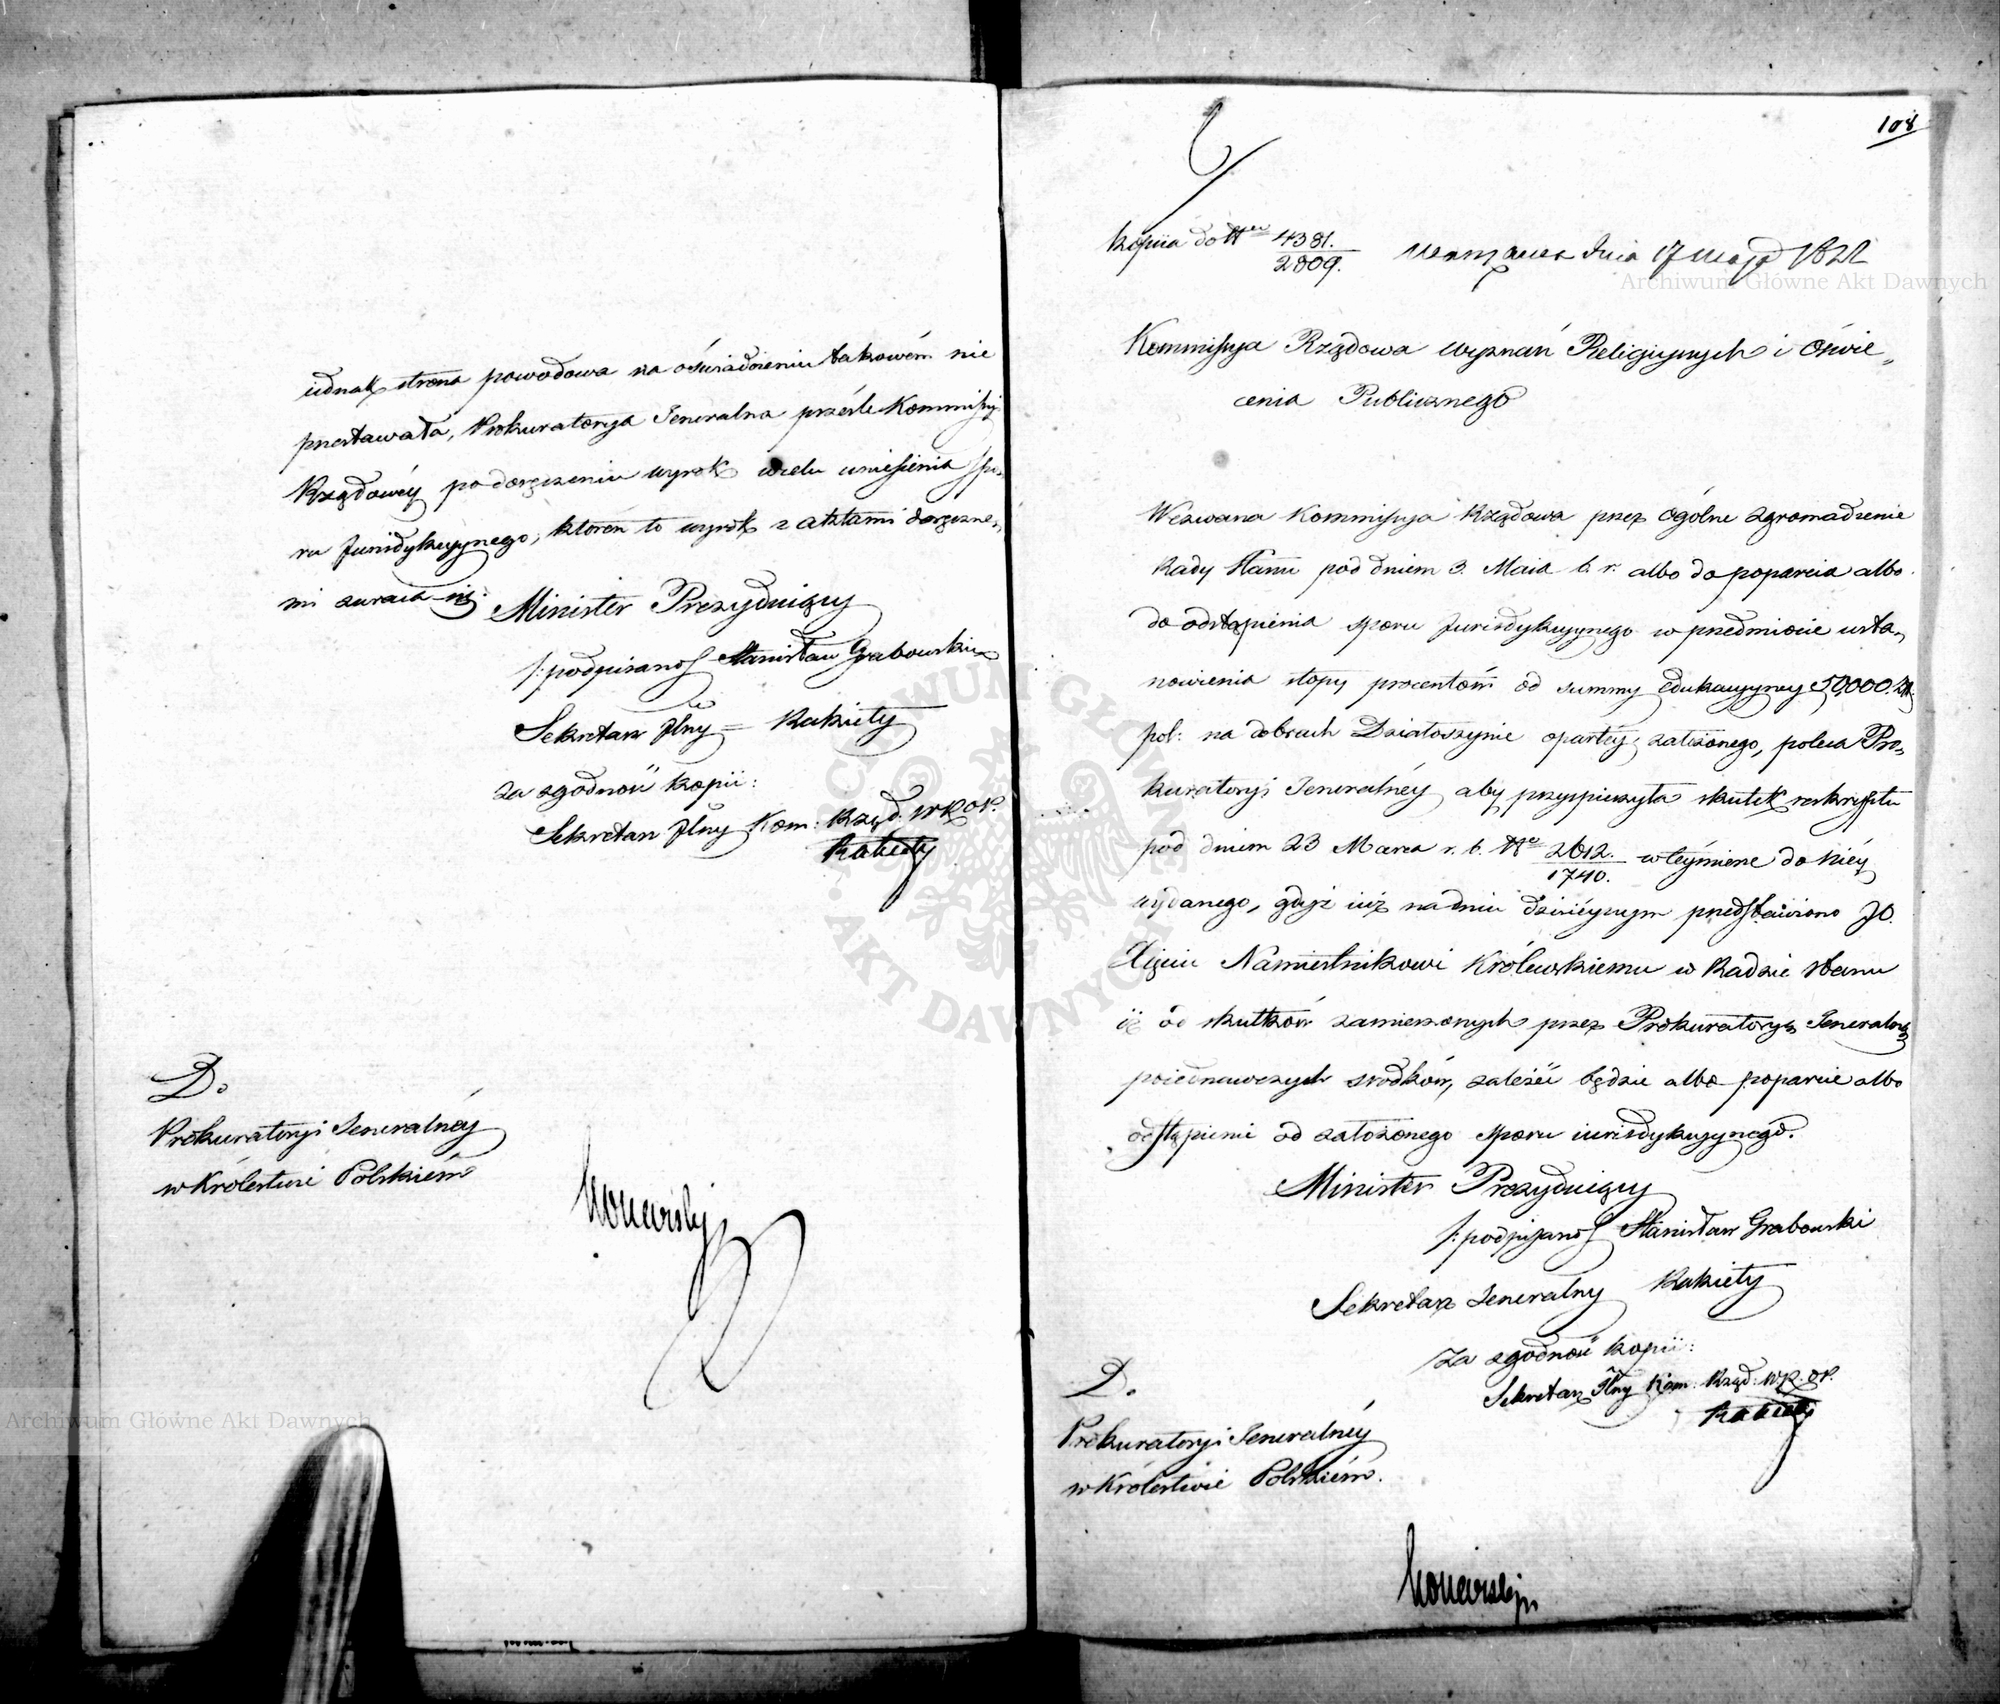 iednak strona powodowa na oświadczeniu takowém nie
przestawała, Prokuratorya Jeneralna prześle Kommissyi
Rządowéy po doręczeniu wyrok w celu wniesienia spo-
ru Jurisdykcyjnego, któren to wyrok z aktami doręczne-
mi zwraca się.
Minister Prezyduiący
/:podpisano/ Stanisław Grabowski
Sekretarz Jlny = Kakiety
za zgodność kopii:
Sekretarz Jlny Kom: Rząd. WROP.
Kakiety
Do
Prokuratoryi Jeneralnéy
w Królestwie Polskiém
108
Kopiia do Nru 4381./2809.
Warszawa dnia 17 Maja 1822
Kommissya Rządowa Wyznań Religijnych i Oświe„
cenia Publicznego
Wezwana Kommissya Rządowa przez Ogólne Zgromadzenie
Rady Stanu pod dniem 3. Maia b. r. albo do poparcia albo
do odstąpienia sporu Jurisdykcyjnego w przedmiocie usta„
nowienia stopy procentów od summy Edukacyyney 50,000. Zł.
pol: na dobrach Działoszynie opartéy, założonego, poleca Pro„
kuratoryi Jeneralnéy aby przyspieszyła skutek reskryptu
pod dniem 23 Marca r. b. Nro 2612./1740. w téymierze do niéy
wydanego, gdyż iuż na dniu dzisieyszym przedstawiono JO.
Xięciu Namiestnikowi Królewskiemu w Radzie Stanu
iż od skutków zamierzonych przez Prokuratoryą Jeneralną
poiednawczych srodków, zależeć będzie albo poparcie albo
odstąpienie od założonego sporu iurisdykcyjnego.
Minister Prezyduiący
/:podpisano/ Stanisław Grabowski
Sekretarz Jeneralny Kakiety
Za zgodność kopii:
Sekretarz Jlny Kom: Rząd: WR. OP.
Kakiety
Do
Prokuratoryi Jeneralnéy
w Królestwie Polskiém.
Archiwum Główne Akt Dawnych
Archiwum Główne Akt Dawnych
ARCHIWUM GŁÓWNE AKT DAWNYCH